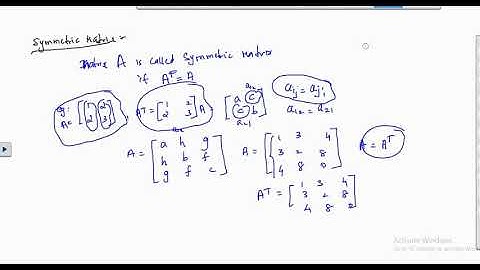 Symmetric Matrix :-
Matrix A is called Symmetric matrix
if A^T = A
eg: A = [1 2 2 3]
A^T = [1 2 2 3] A
[a c c b]
a12
a21
aij = aji
a12 = a21
A = [a h g
h b f
g f c]
A = [1 3 4
3 2 8
4 8 0]
A = A^T
A^T = [1 3 4
3 2 8
4 8 0]
Activate Windows